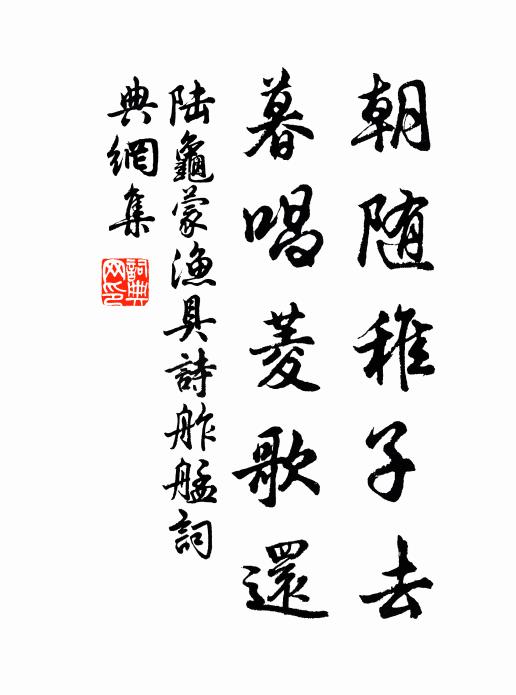 朝随稚子去
暮唱菱歌還
陆龜蒙漁具詩舴艋詞
典網集
詞典
网印